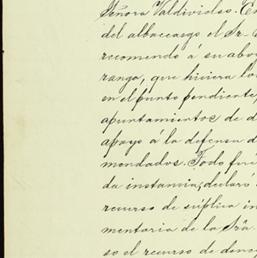 Señora Valdivielso. En
del albaceazgo el Sr.
recomendó á su abo
rango, que hiciera lo
en el punto pendiente,
apuntamientos de d
apoyo á la defensa d
mendados. Todo fué
da instancia, declaró
recurso de súplica in
mentaria de la Sra.
so el recurso de dene